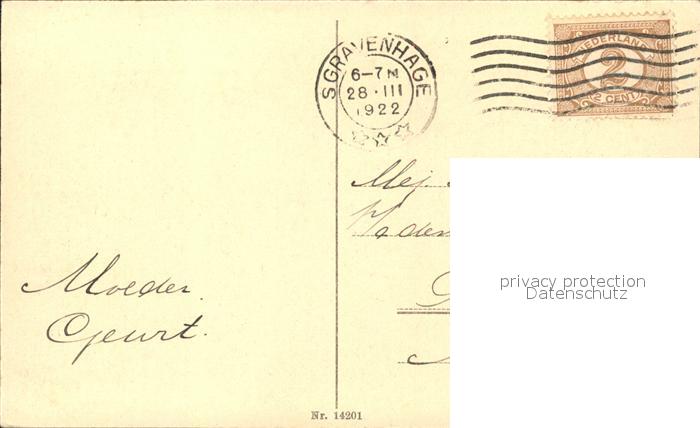 'SGRAVENHAGE
6-7 N
28 · III
1922
NEDERLAND
2
2 CENT
Mej.
privacy protection
Datenschutz
Moeder.
Geurt.
Nr. 14201